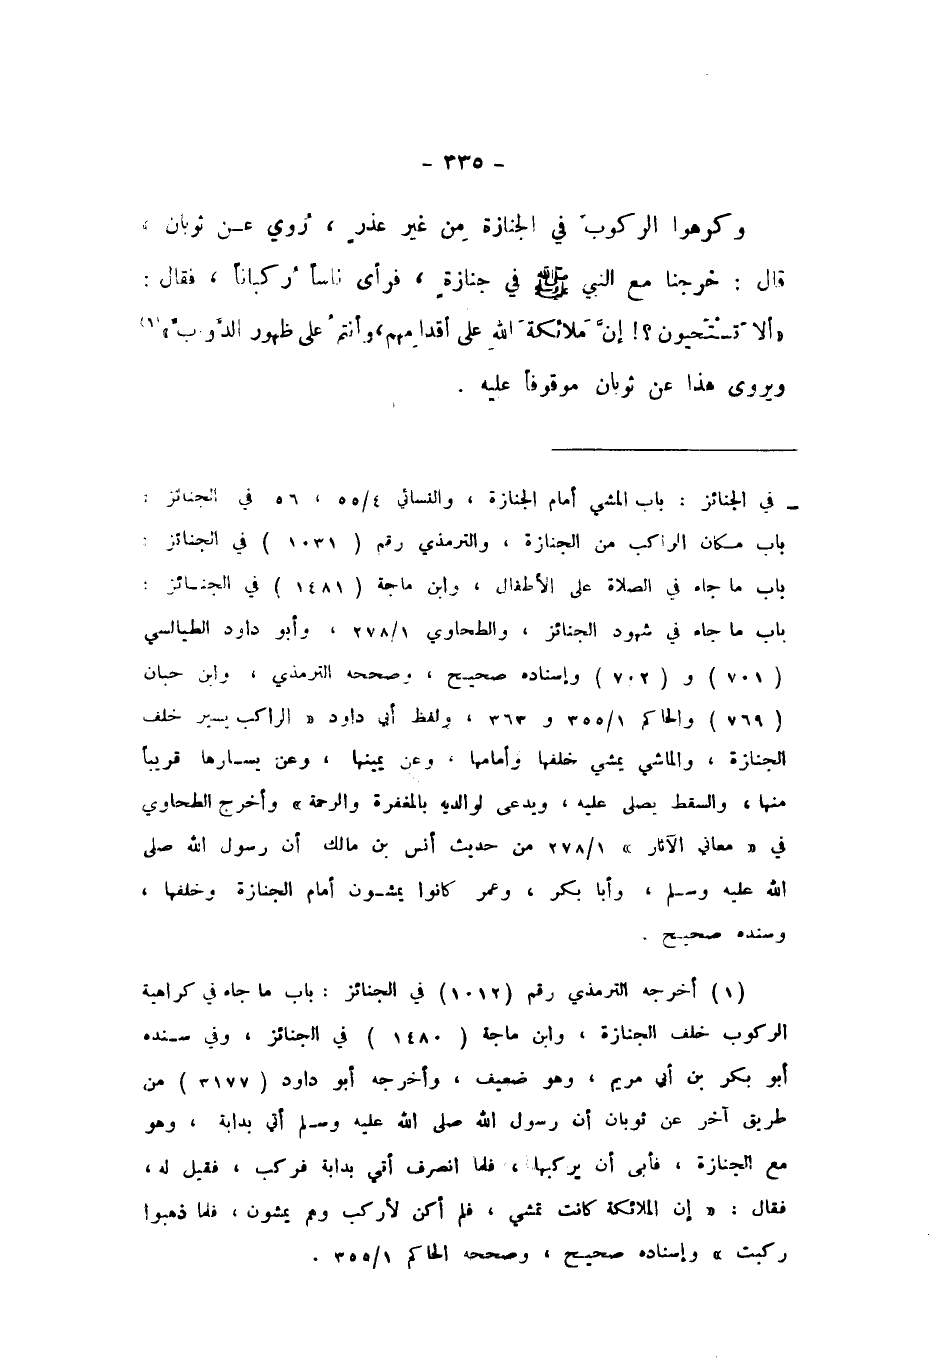 - ٣٣٥ -
وكرهوا الركوبَ في الجنازة مِن غير عذرٍ ، رُوي عــن ثوبان ،
قال : خرجنا مع النبي ﷺ في جنازةٍ ، فرأى ناساً رُكباناً ، فقال :
« ألا تَستْتَحيون ؟! إنَّ مَلائكةَ اللهِ على أقدامِهم ، وأنتمُ على ظهور الدَّوابِّ » (١)
ويروى هذا عن ثوبان موقوفاً عليه .
ـ في الجنائز : باب المشي أمام الجنازة ، والنسائي ٥٥/٤ ، ٥٦ في الجنائز :
باب مكان الراكب من الجنازة ، والترمذي رقم ( ١٠٣١ ) في الجنائز :
باب ما جاء في الصلاة على الأطفال ، وابن ماجة ( ١٤٨١ ) في الجنــائز :
باب ما جاء في شهود الجنائز ، والطحاوي ٢٧٨/١ ، وأبو داود الطيالسي
( ٧٠١ ) و ( ٧٠٢ ) وإسناده صحيح ، وصححه الترمذي ، وابن حبان
( ٧٦٩ ) والحاكم ٣٥٥/١ و ٣٦٣ ، ولفظ أبي داود « الراكب يسير خلف
الجنازة ، والماشي يمشي خلفها وأمامها ، وعن يمينها ، وعن يســارها قريباً
منها ، والسقط يصلى عليه ، ويدعى لوالديه بالمغفرة والرحمة » وأخرج الطحاوي
في « معاني الآثار » ٢٧٨/١ من حديث أنس بن مالك أن رسول الله صلى
الله عليه وســلم ، وأبا بكر ، وعمر كانوا يمشــون أمام الجنازة وخلفها ،
وسنده صحيح .
(١) أخرجه الترمذي رقم (١٠١٢) في الجنائز : باب ما جاء في كراهية
الركوب خلف الجنازة ، وابن ماجة ( ١٤٨٠ ) في الجنائز ، وفي ســنده
أبو بكر بن أبي مريم ، وهو ضعيف ، وأخرجه أبو داود ( ٣١٧٧ ) من
طريق آخر عن ثوبان أن رسول الله صلى الله عليه وســلم أتي بدابة ، وهو
مع الجنازة ، فأبى أن يركبها ، فلما انصرف أتي بدابة فركب ، فقيل له ،
فقال : « إن الملائكة كانت تمشي ، فلم أكن لأركب وهم يمشون ، فلما ذهبوا
ركبت » وإسناده صحيح ، وصححه الحاكم ٣٥٥/١ .